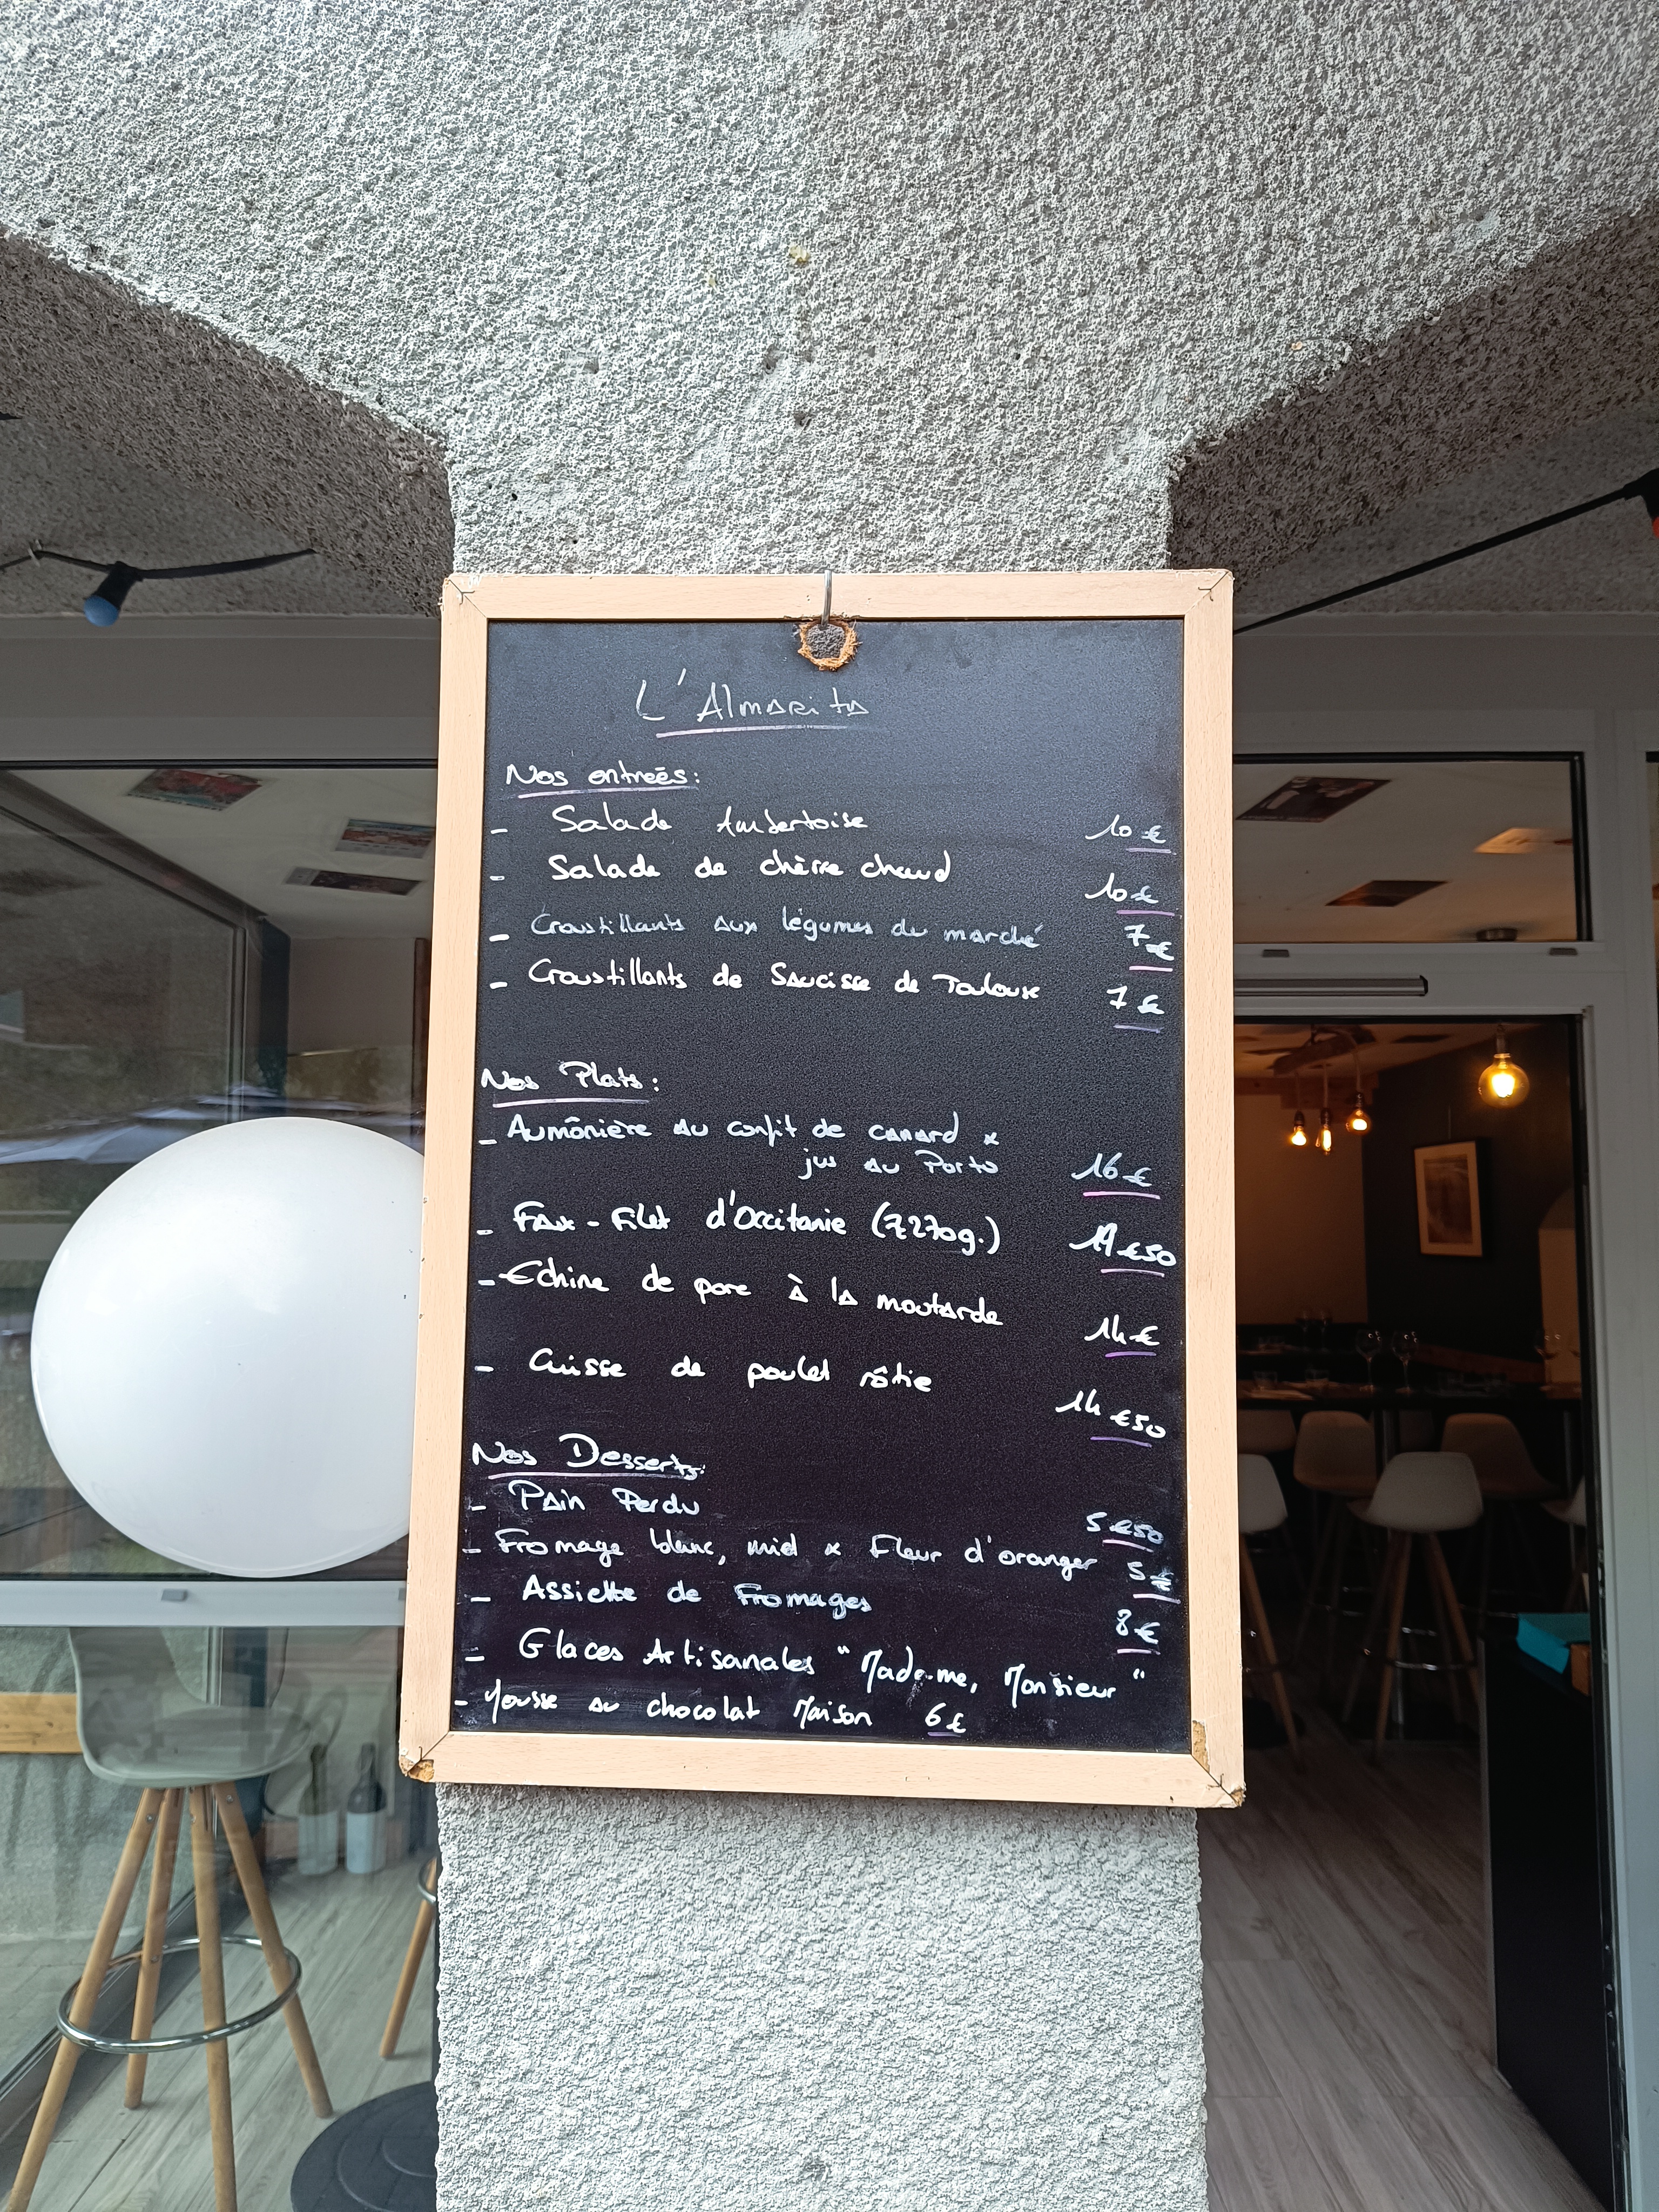 L'Almarita
Nos entreés:
- Salade Ambertoise 10 €
- Salade de chèvre chaud 10 €
- Croustillants aux légumes du marché 7 €
- Croustillants de Saucisse de Toulouse 7 €
Nos Plats:
- Aumônière au confit de canard &
jus au Porto 16 €
- Faux-Filet d'Occitanie ( 270g.) €50
- Echine de porc à la moutarde 14 €
- Cuisse de poulet rôtie 14 €50
Nos Desserts:
- Pain Perdu 5 €50
- Fromage blanc, miel & Fleur d'oranger 5 €
- Assiette de Fromages 8 €
- Glaces Artisanales "Madame, Monsieur"
- Mousse au chocolat Maison 6 €